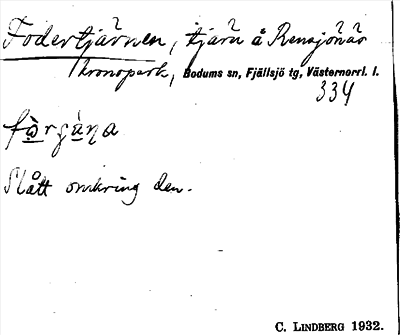 Fodertjärnen, tjärn å Rensjönäs
kronopark, Bodums sn, Fjällsjö tg, Västernorrl. l.
334
Slått omkring den.
C. LINDBERG 1932.